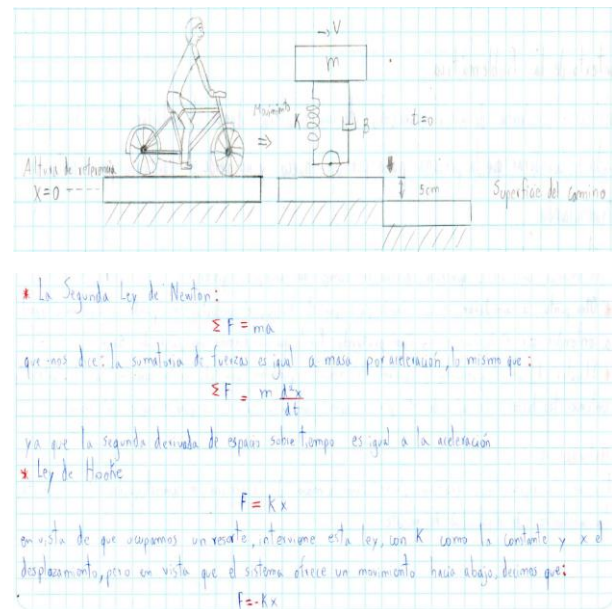 →V
m
Movimiento
K
B
t=0
⇒
Altura de referencia
X=0
5cm
Superficie del camino
* La Segunda Ley de Newton:
ΣF = ma
que nos dice: la sumatoria de fuerzas es igual a masa por aceleración, lo mismo que:
ΣF = m d²x/dt
ya que la segunda derivada de espacio sobre tiempo es igual a la aceleración
* Ley de Hooke
F = Kx
en vista de que ocupamos un resorte, interviene esta ley, con K como la constante y x el
desplazamiento, pero en vista que el sistema ofrece un movimiento hacia abajo, decimos que:
F=-Kx